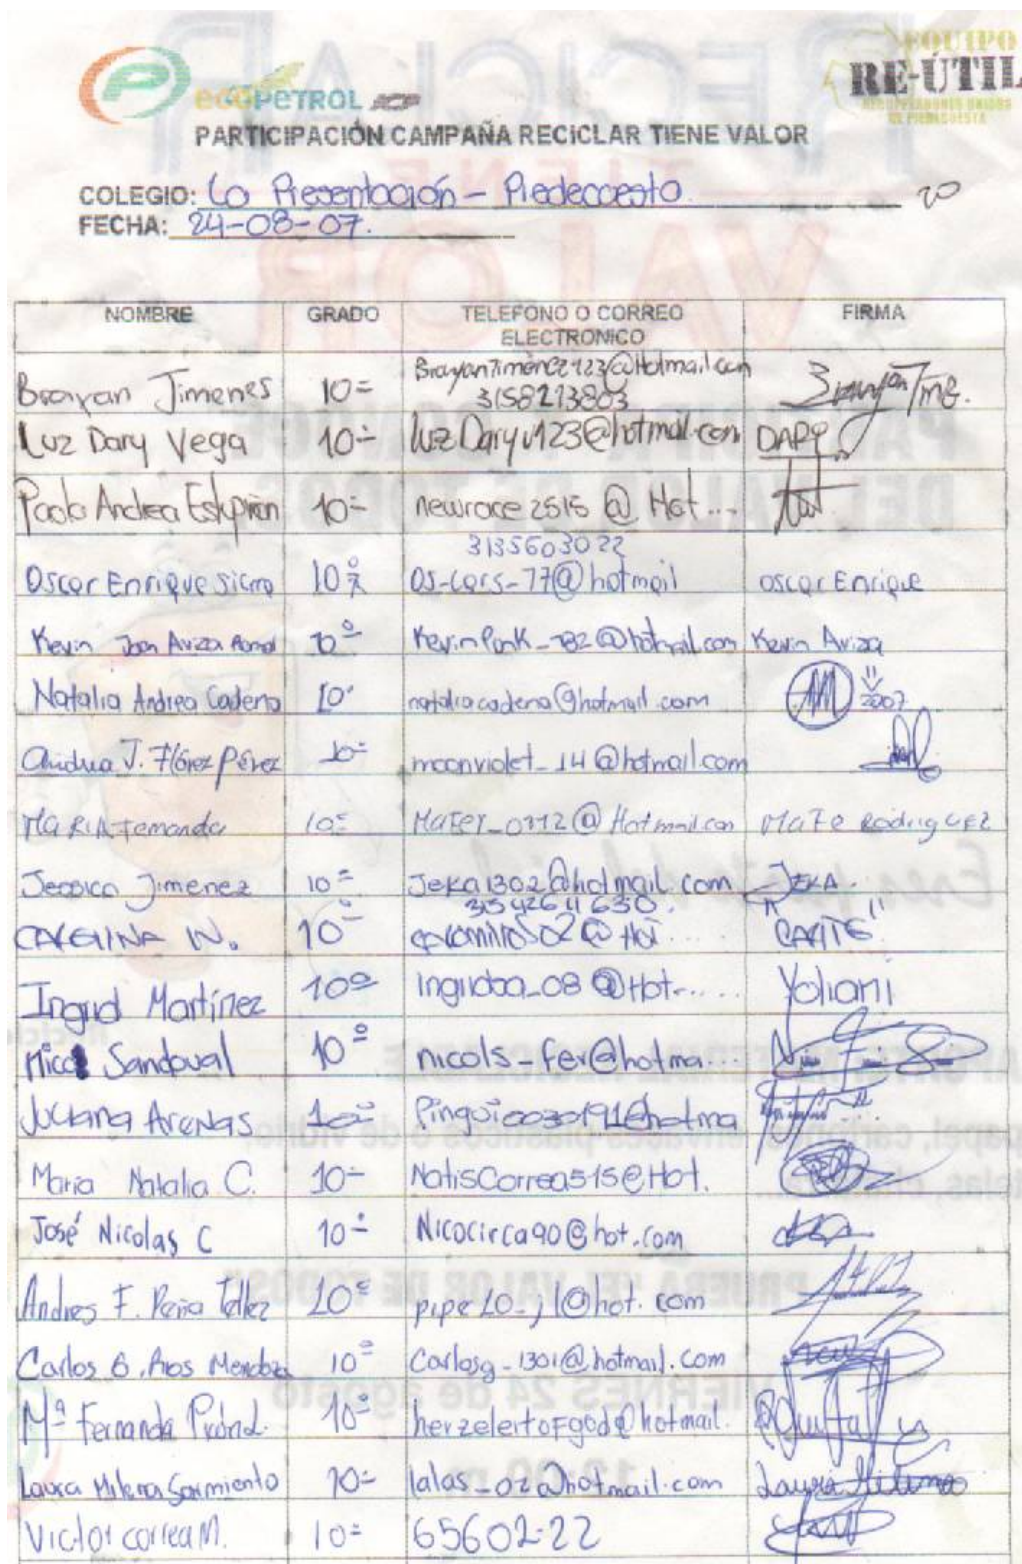 ecopetrol ICP
EQUIPO
RE-ÚTIL
RECUPERADORES UNIDOS
DE PIEDECUESTA
PARTICIPACIÓN CAMPAÑA RECICLAR TIENE VALOR
COLEGIO: La Presentación - Piedecuesta 20
FECHA: 24-08-07.
NOMBRE GRADO TELEFONO O CORREO ELECTRONICO FIRMA
Brayan Jimenes 10º BrayanJimenez123@Hotmail.com
3158273803
Luz Dary Vega 10º luzDaryv123@hotmail.com DARY
Paola Andrea Estupiñan 10º newrace2515 @ Hot...
3135603022
Oscar Enrique 10º @hotmail oscar Enrique
Kevin Aviza 10º @hotmail.com Kevin Aviza
Natalia Andrea Cadena 10º nataliacadena@hotmail.com 2007
J. Flórez Pérez 10º moonviolet_14@hotmail.com
MARIA Fernanda 10º @Hotmail.com MaFe RodrigUEZ
Jessica Jimenez 10º Jeka1302@hotmail.com JEKA
CAROLINA N. 10º "CARITE"
Ingrid Martínez 10º @Hot..... Yoliani
Nicol Sandoval 10º nicols_fer@hotma...
Juliana Arenas 10º
Maria Natalia C. 10º NatisCorrea515@Hot.
José Nicolas C 10º Nicocirca90@hot.com
Andres F. Peña Tellez 10º pipe10_jl@hot.com
Carlos Mendoza 10º Carlosg_1301@hotmail.com
Mª Fernanda 10º herzeleitofgod@hotmail.
Laura Milena Sarmiento 10º lalas_02@hotmail.com Laura Milena
Victor correa M. 10º 65602-22